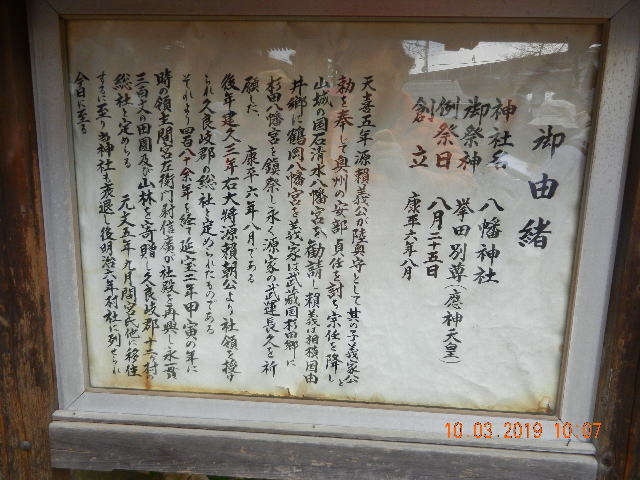 御由緒
神社名 八幡神社
御祭神 誉田別尊(應神天皇)
例祭日 八月二十五日
創立 康平六年八月
天喜五年源頼義公が陸奥守として其の子義家公
勅を奉して奥州の安部貞任を討ち宗任を降し
山城の国石清水八幡宮を勧請し頼義は相模国由
井郷に鶴岡八幡宮を義家は武蔵国杉田郷に
杉田八幡宮を鎮祭し永く源家の武運長久を祈
願した 康平六年八月である
後年建久三年右大将源頼朝公より社領を授け
られ久良岐郡の総社と定められたものである
それより四百八十余年を経て延宝二年甲寅の年に
時の領主間宮左衛門尉信廣が社殿を再興し永一貫
三百文の田圃及び山林を寄贈し久良岐郡十六ヶ村
総社と定めたる 元文五年九月間宮氏他に移住
するに至り当神社も衰退し後明治六年村社に列せられ
今日に至る
10.03.2019 10:07